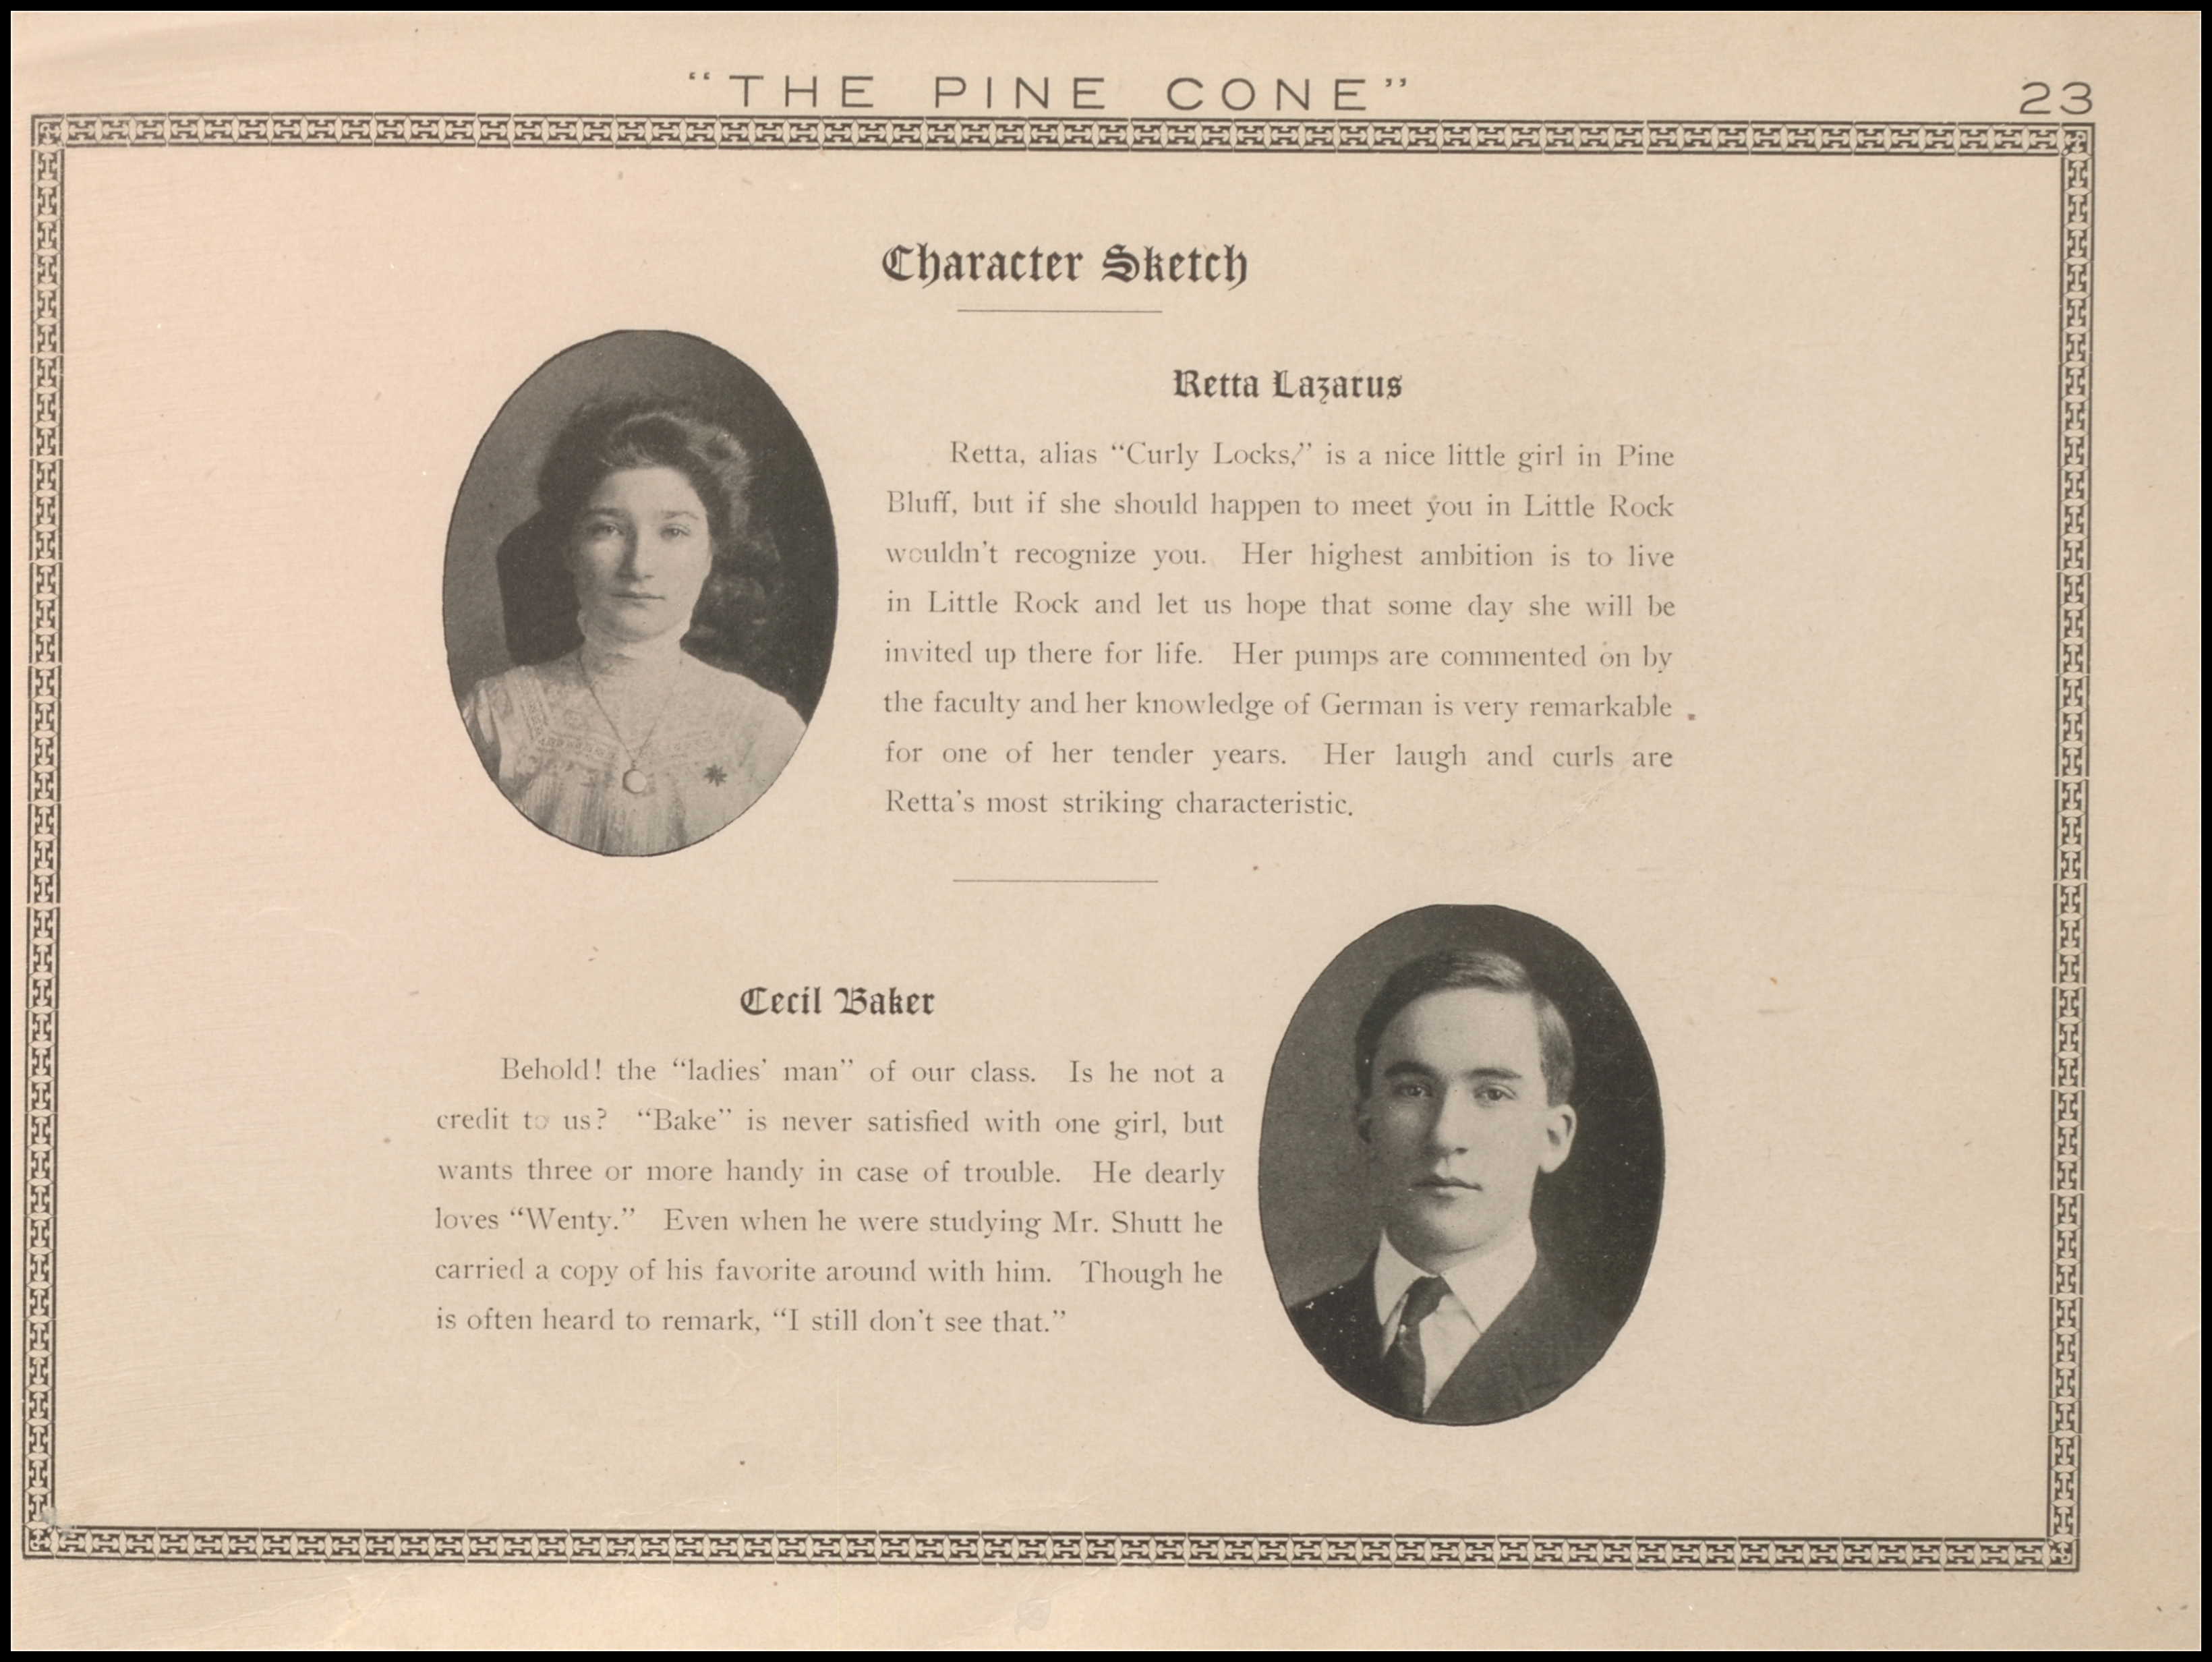 "THE PINE CONE"
23
Character Sketch
Retta Lazarus
Retta, alias "Curly Locks," is a nice little girl in Pine
Bluff, but if she should happen to meet you in Little Rock
wouldn't recognize you. Her highest ambition is to live
in Little Rock and let us hope that some day she will be
invited up there for life. Her pumps are commented on by
the faculty and her knowledge of German is very remarkable
for one of her tender years. Her laugh and curls are
Retta's most striking characteristic.
Cecil Baker
Behold! the "ladies' man" of our class. Is he not a
credit to us? "Bake" is never satisfied with one girl, but
wants three or more handy in case of trouble. He dearly
loves "Wenty." Even when he were studying Mr. Shutt he
carried a copy of his favorite around with him. Though he
is often heard to remark, "I still don't see that."